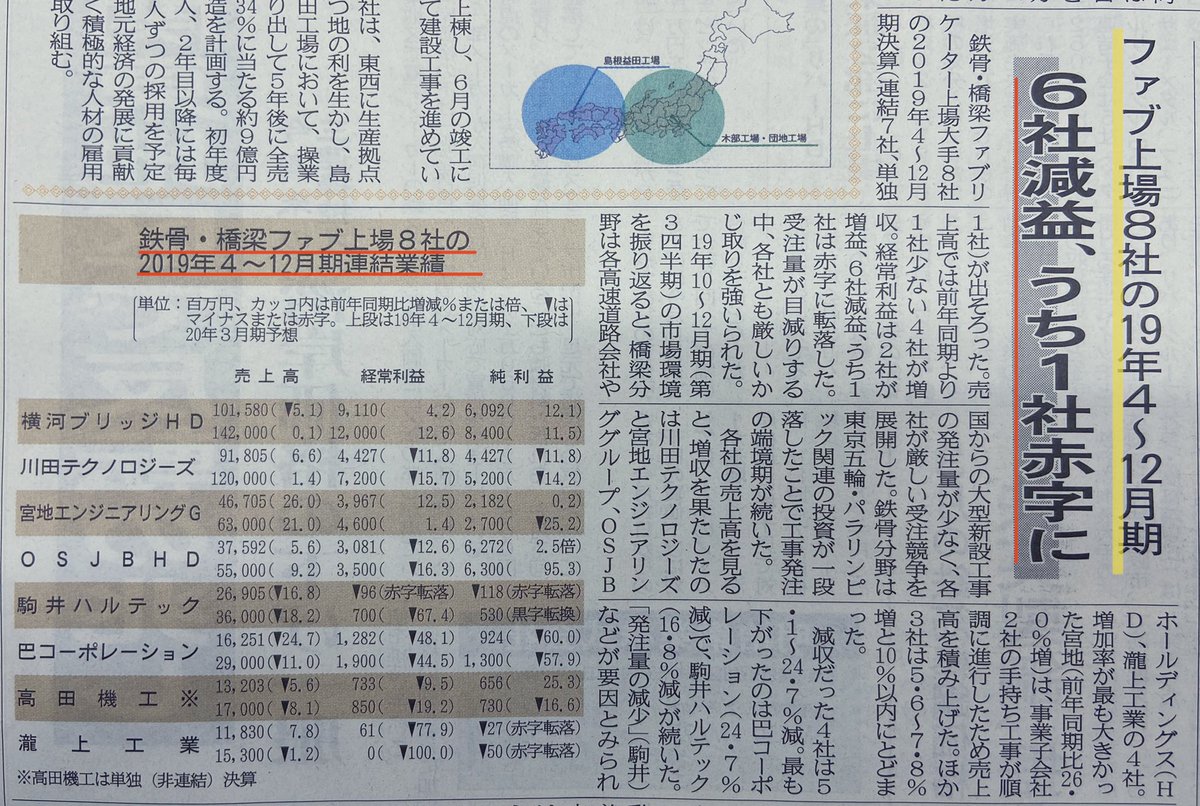 ファブ上場8社の19年4～12月期
6社減益、うち1社赤字に
鉄骨・橋梁ファブリ
ケーター上場大手8社
の2019年4～12月
期決算(連結7社、単独
1社)が出そろった。売
上高では前年同期より
1社少ない4社が増
収。経常利益は2社が
増益、6社減益、うち1
社は赤字に転落した。
受注量が目減りする
中、各社とも厳しいか
じ取りを強いられた。
19年10～12月期(第
3四半期)の市場環境
を振り返ると、橋梁分
野は各高速道路会社や
国からの大型新設工事
の発注量が少なく、各
社が厳しい受注競争を
展開した。鉄骨分野は
東京五輪・パラリンピ
ック関連の投資が一段
落したことで工事発注
の端境期が続いた。
各社の売上高を見る
と、増収を果たしたの
は川田テクノロジーズ
と宮地エンジニアリン
ググループ、OSJB
ホールディングス(H
D)、瀧上工業の4社。
増加率が最も大きかっ
た宮地(前年同期比26・
0%増)は、事業子会社
2社の手持ち工事が順
調に進行したため売上
高を積み上げた。ほか
3社は5・6～7・8%
増と10%以内にとどま
った。
減収だった4社は5
・1～24・7%減。最も
下がったのは巴コーポ
レーション(24・7%
減)で、駒井ハルテック
(16・8%減)が続いた。
「発注量の減少」(駒井)
などが要因とみられ
上棟し、6月の竣工に
て建設工事を進めてい
社は、東西に生産拠点
つ地の利を生かし、島
田工場において、操業
り出して5年後に全売
34%に当たる約9億円
造を計画する。初年度
人、2年目以降には毎
人ずつの採用を予定
く積極的な人材の雇用
地元経済の発展に貢献
取り組む。
島根益田工場
木部工場・団地工場
鉄骨・橋梁ファブ上場8社の
2019年4～12月期連結業績
(単位：百万円、カッコ内は前年同期比増減%または倍、▼は
マイナスまたは赤字。上段は19年4～12月期、下段は
20年3月期予想)
売上高 経常利益 純利益
横河ブリッジHD 101,580(▼5.1) 9,110( 4.2) 6,092( 12.1)
142,000( 0.1) 12,000( 12.6) 8,400( 11.5)
川田テクノロジーズ 91,805( 6.6) 4,427(▼11.8) 4,427(▼11.8)
120,000( 1.4) 7,200(▼15.7) 5,200(▼14.2)
宮地エンジニアリングG 46,705(26.0) 3,967( 12.5) 2,182( 0.2)
63,000(21.0) 4,600( 1.4) 2,700(▼25.2)
OSJBHD 37,592( 5.6) 3,081(▼12.6) 6,272( 2.5倍)
55,000( 9.2) 3,500(▼16.3) 6,300( 95.3)
駒井ハルテック 26,905(▼16.8) ▼96(赤字転落) ▼118(赤字転落)
36,000(▼18.2) 700(▼67.4) 530(黒字転換)
巴コーポレーション 16,251(▼24.7) 1,282(▼48.1) 924(▼60.0)
29,000(▼11.0) 1,900(▼44.5) 1,300(▼57.9)
高田機工※ 13,203(▼5.6) 733(▼9.5) 656( 25.3)
17,000(▼8.1) 850(▼19.2) 730(▼16.6)
瀧上工業 11,830( 7.8) 61(▼77.9) ▼27(赤字転落)
15,300(▼1.2) 0(▼100.0) ▼50(赤字転落)
※高田機工は単独(非連結)決算